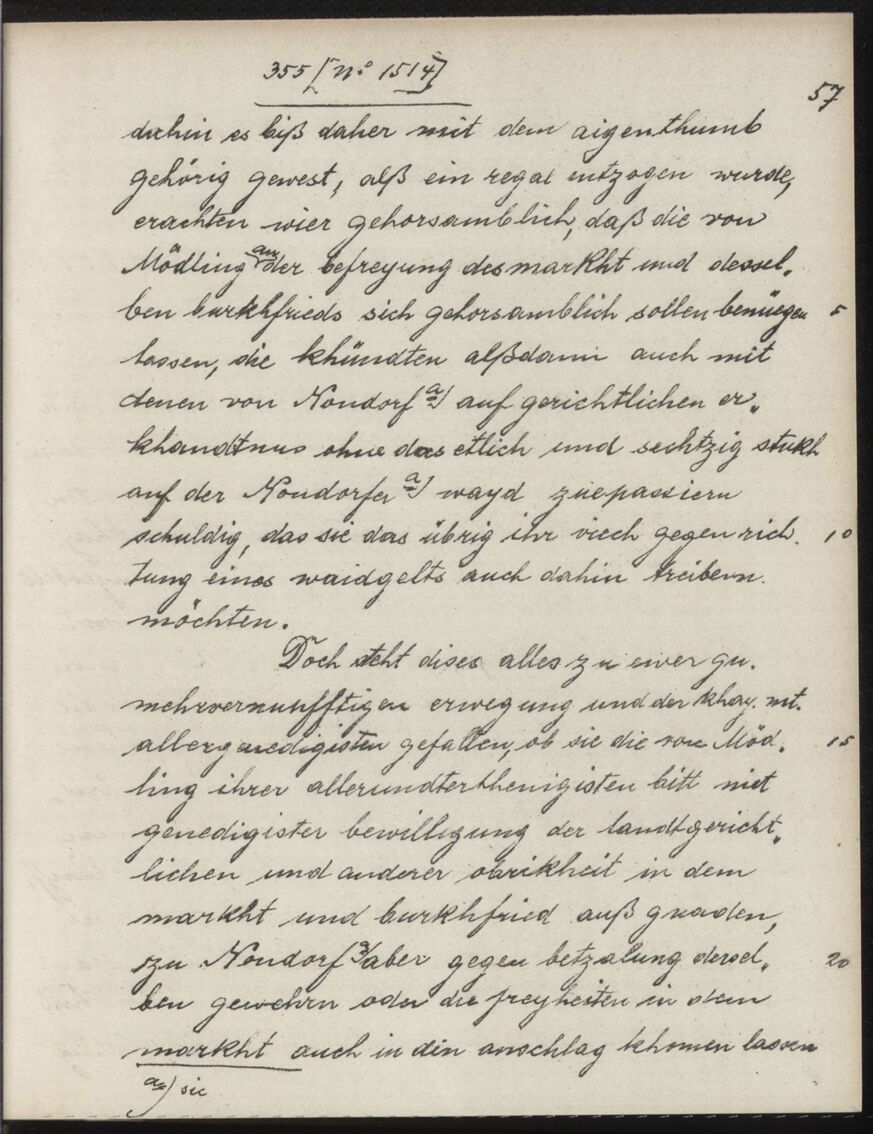 355 [Nº 1514]
57
dahin es biß daher mit dem aigenthumb
gehörig gewest, alß ein regal entzogen wurde,
erachten wier gehorsamblich, daß die von
Mödling an der befreyung des markht und dessel„
ben burkhfrieds sich gehorsamblich sollen benüegen 5
lassen, die khündten alßdann auch mit
denen von Nondorf a) auf gerichtlichen er„
khandtnus ohne das etlich und sechtzig stukh
auf der Nondorfer a) wayd zuepassiern
schuldig, das sie das übrig ihr viech gegen rich. 10
tung eines waidgelts auch dahin treibern.
möchten.
Doch steht dises alles zu ewer gn.
mehrvernunfftigen erwegung und der khay. mt.
allergnedigisten gefallen, ob sie die von Möd. 15
ling ihrer allerundterthenigisten bitt mit
genedigister bewilligung der landtgericht„
lichen und anderer obrikheit in dem
markht und burkhfried auß gnaden,
zu Nondorf a) aber gegen betzalung dersel„ 20
ben gewehrn oder die freyheiten in dem
markht auch in den anschlag khomen lassen
a) sic